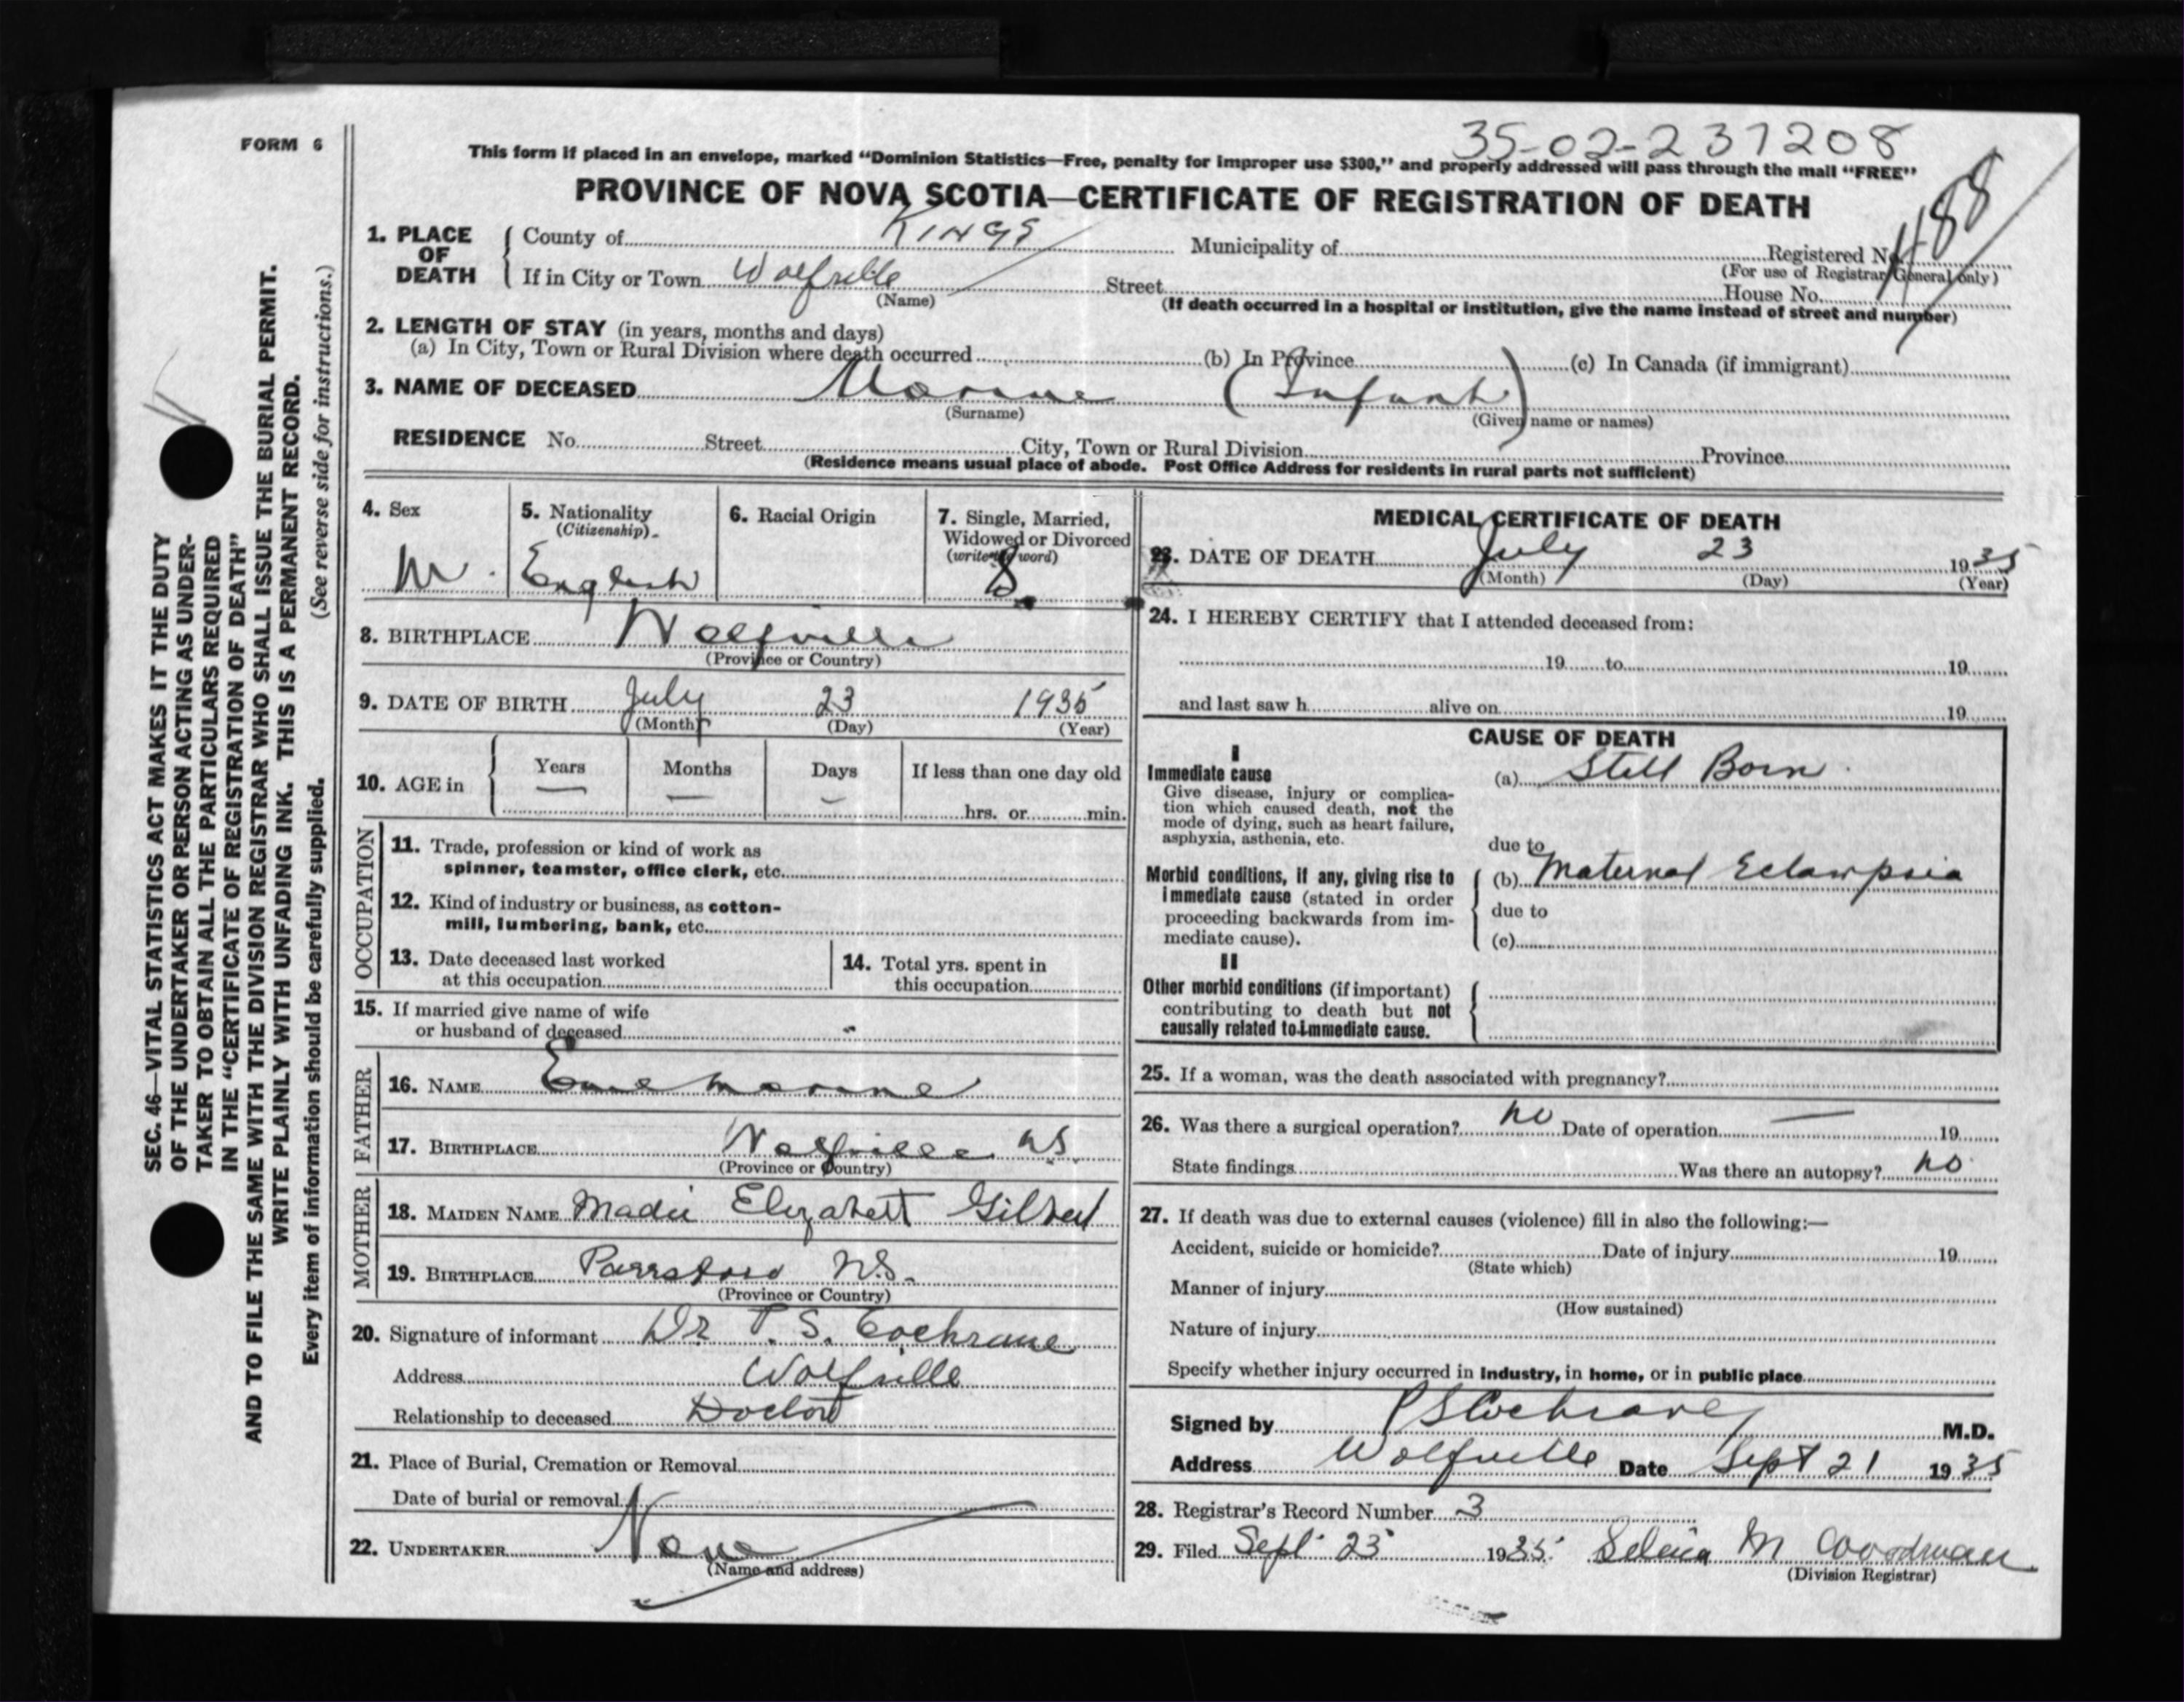 FORM 6
35-02-237208
This form if placed in an envelope, marked “Dominion Statistics—Free, penalty for improper use $300,” and properly addressed will pass through the mail “FREE”
PROVINCE OF NOVA SCOTIA—CERTIFICATE OF REGISTRATION OF DEATH
1. PLACE OF DEATH { County of KINGS Municipality of Registered No. 488
(For use of Registrar General only)
If in City or Town Wolfville Street House No.
(Name) (If death occurred in a hospital or institution, give the name instead of street and number)
2. LENGTH OF STAY (in years, months and days)
(a) In City, Town or Rural Division where death occurred (b) In Province (c) In Canada (if immigrant)
3. NAME OF DECEASED (Infant)
(Surname) (Given name or names)
RESIDENCE No. Street City, Town or Rural Division Province
(Residence means usual place of abode. Post Office Address for residents in rural parts not sufficient)
4. Sex M.
5. Nationality (Citizenship) English
6. Racial Origin
7. Single, Married, Widowed or Divorced (write the word) S.
8. BIRTHPLACE Wolfville
(Province or Country)
9. DATE OF BIRTH July 23 1935
(Month) (Day) (Year)
10. AGE in { Years — Months — Days — If less than one day old
hrs. or min.
OCCUPATION
11. Trade, profession or kind of work as
spinner, teamster, office clerk, etc.
12. Kind of industry or business, as cotton-
mill, lumbering, bank, etc.
13. Date deceased last worked
at this occupation
14. Total yrs. spent in
this occupation
15. If married give name of wife
or husband of deceased
FATHER
16. NAME
17. BIRTHPLACE Wolfville N.S.
(Province or Country)
MOTHER
18. MAIDEN NAME Elizabeth Gilbert
19. BIRTHPLACE Parrsboro N.S.
(Province or Country)
20. Signature of informant Dr P. S. Cochrane
Address Wolfville
Relationship to deceased Doctor
21. Place of Burial, Cremation or Removal
Date of burial or removal
22. UNDERTAKER None
(Name and address)
MEDICAL CERTIFICATE OF DEATH
23. DATE OF DEATH July 23 1935
(Month) (Day) (Year)
24. I HEREBY CERTIFY that I attended deceased from:
19 to 19
and last saw h alive on 19
CAUSE OF DEATH
I
Immediate cause
Give disease, injury or complica-
tion which caused death, not the
mode of dying, such as heart failure,
asphyxia, asthenia, etc.
(a) Still Born.
due to
Morbid conditions, if any, giving rise to
immediate cause (stated in order
proceeding backwards from im-
mediate cause).
(b) Maternal Eclampsia
due to
(c)
II
Other morbid conditions (if important)
contributing to death but not
causally related to immediate cause.
25. If a woman, was the death associated with pregnancy?
26. Was there a surgical operation? no Date of operation — 19
State findings Was there an autopsy? no
27. If death was due to external causes (violence) fill in also the following:—
Accident, suicide or homicide? Date of injury 19
(State which)
Manner of injury
(How sustained)
Nature of injury
Specify whether injury occurred in industry, in home, or in public place
Signed by P S Cochrane M.D.
Address Wolfville Date Sept 21 1935
28. Registrar's Record Number 3
29. Filed Sept 23 1935 M Woodman
(Division Registrar)
SEC. 46—VITAL STATISTICS ACT MAKES IT THE DUTY
OF THE UNDERTAKER OR PERSON ACTING AS UNDER-
TAKER TO OBTAIN ALL THE PARTICULARS REQUIRED
IN THE “CERTIFICATE OF REGISTRATION OF DEATH”
AND TO FILE THE SAME WITH THE DIVISION REGISTRAR WHO SHALL ISSUE THE BURIAL PERMIT.
WRITE PLAINLY WITH UNFADING INK. THIS IS A PERMANENT RECORD.
Every item of information should be carefully supplied. (See reverse side for instructions.)